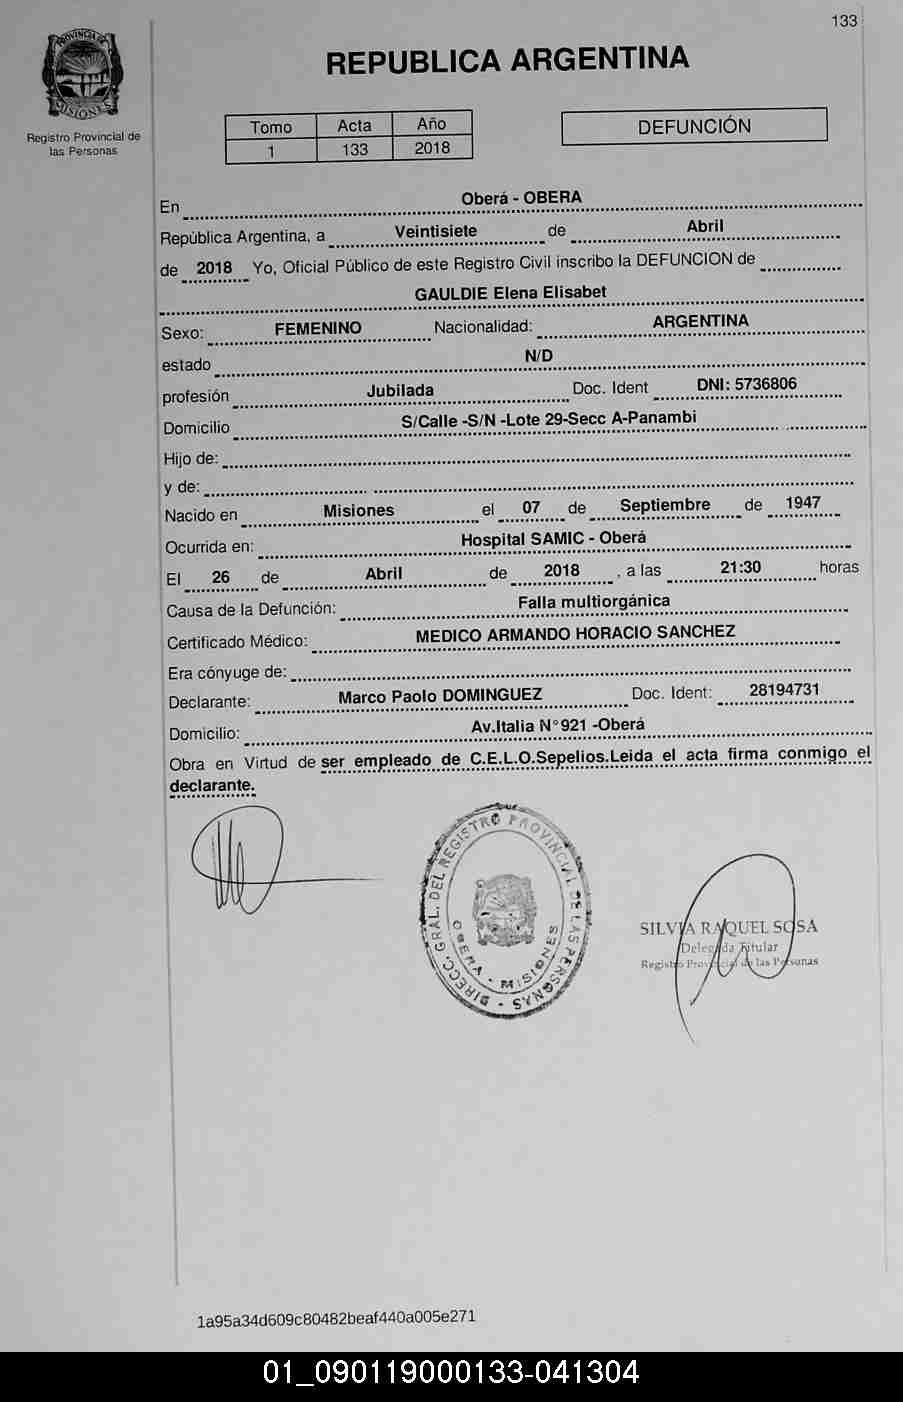 133
PROVINCIA DE
MISIONES
Registro Provincial de
las Personas
REPUBLICA ARGENTINA
Tomo Acta Año
1 133 2018
DEFUNCIÓN
En Oberá - OBERA
República Argentina, a Veintisiete de Abril
de 2018 Yo, Oficial Público de este Registro Civil inscribo la DEFUNCION de
GAULDIE Elena Elisabet
Sexo: FEMENINO Nacionalidad: ARGENTINA
estado N/D
profesión Jubilada Doc. Ident DNI: 5736806
Domicilio S/Calle -S/N -Lote 29-Secc A-Panambi
Hijo de:
y de:
Nacido en Misiones el 07 de Septiembre de 1947
Ocurrida en: Hospital SAMIC - Oberá
El 26 de Abril de 2018 , a las 21:30 horas
Causa de la Defunción: Falla multiorgánica
Certificado Médico: MEDICO ARMANDO HORACIO SANCHEZ
Era cónyuge de:
Declarante: Marco Paolo DOMINGUEZ Doc. Ident: 28194731
Domicilio: Av.Italia N°921 -Oberá
Obra en Virtud de ser empleado de C.E.L.O.Sepelios.Leida el acta firma conmigo el
declarante.
DIRECC. GRAL. DEL REGISTRO PROVINCIAL DE LAS PERSONAS -
OBERA - MISIONES
SILVIA RAQUEL SOSA
Delegada Titular
Registro Provincial de las Personas
1a95a34d609c80482beaf440a005e271
01_090119000133-041304